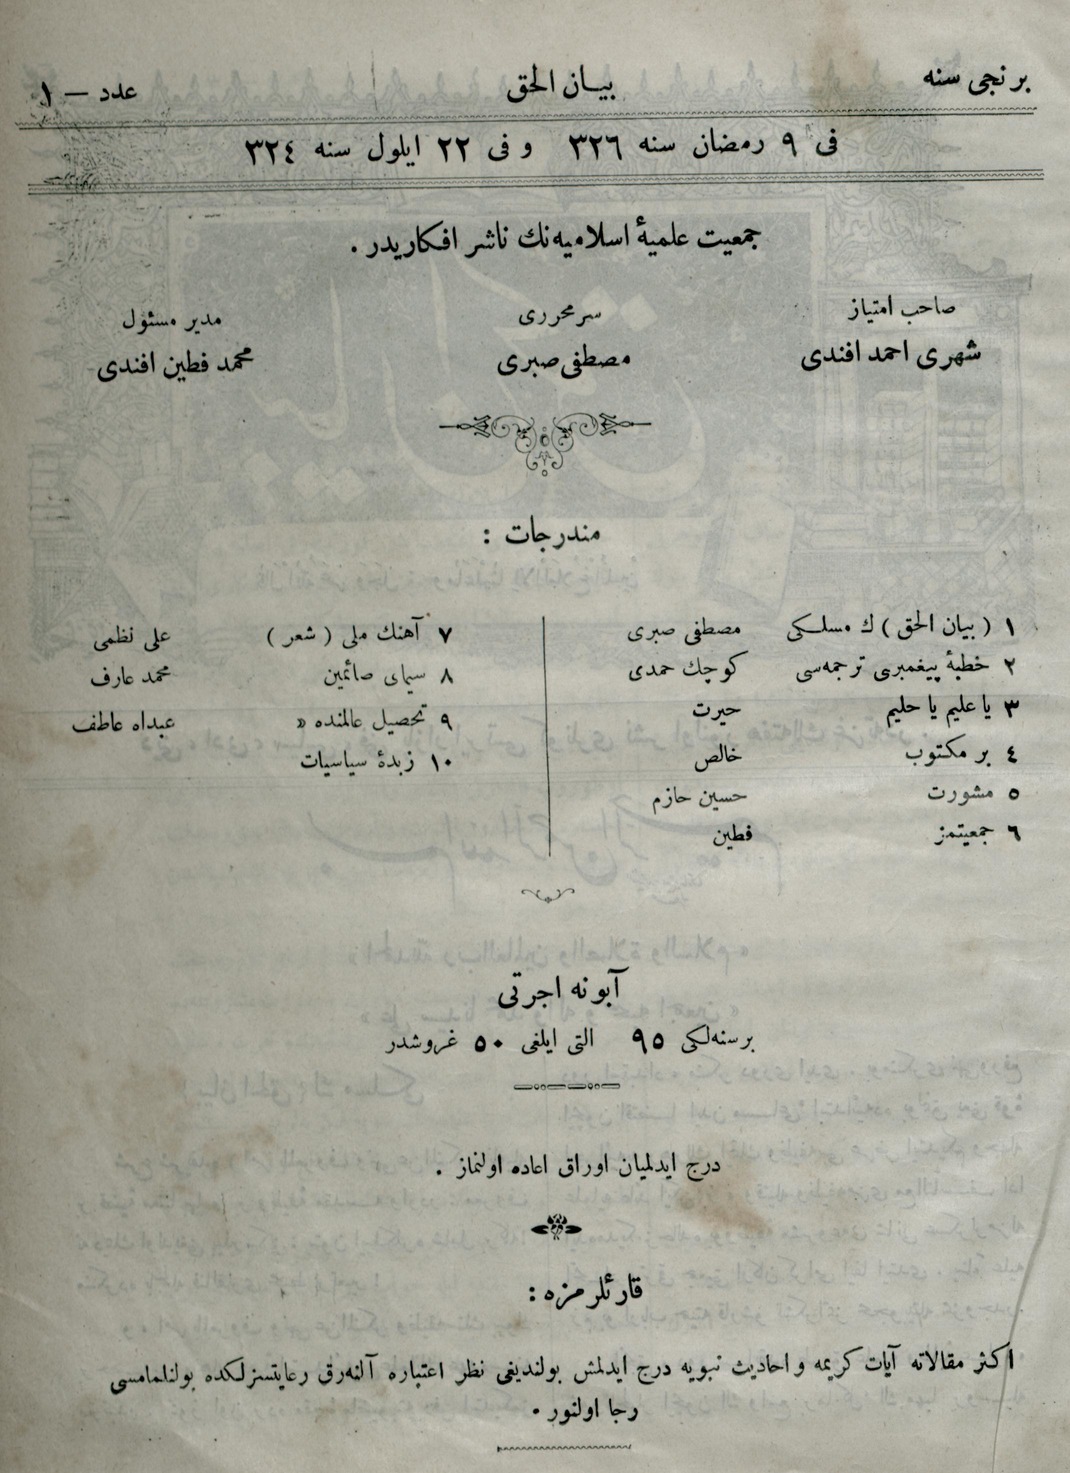 برنجی سنه
بیان الحق
عدد — ١
فی ٩ رمضان سنه ٣٢٦ و فی ٢٢ ایلول سنه ٣٢٤
جمعیت علمیۀ اسلامیه‌نك ناشر افكاریدر .
صاحب امتیاز
شهری احمد افندی
سرمحرری
مصطفی صبری
مدیر مسئول
محمد فطین افندی
مندرجات :
١ ( بیان الحق ) ك مسلكی مصطفی صبری
٢ خطبۀ پیغمبری ترجمه‌سی كوچك حمدی
٣ یا علیم یا حلیم حیرت
٤ بر مكتوب خالص
٥ مشورت حسین حازم
٦ جمعیتمز فطین
٧ آهنك ملی ( شعر ) علی نظمی
٨ سیمای صائمین محمد عارف
٩ تحصیل عالمنده » عبداه عاطف
١٠ زبدۀ سیاسیات
آبونه اجرتی
برسنه‌لكی ٩٥ التی ایلغی ٥٠ غروشدر
درج ایدلمیان اوراق اعاده اولنماز .
قارئلرمزه :
اكثر مقالاته آیات كریمه و احادیث نبویه درج ایدلمش بولندیغی نظر اعتباره آلنه‌رق رعایتسزلكده بولنلمامسی
رجا اولنور .